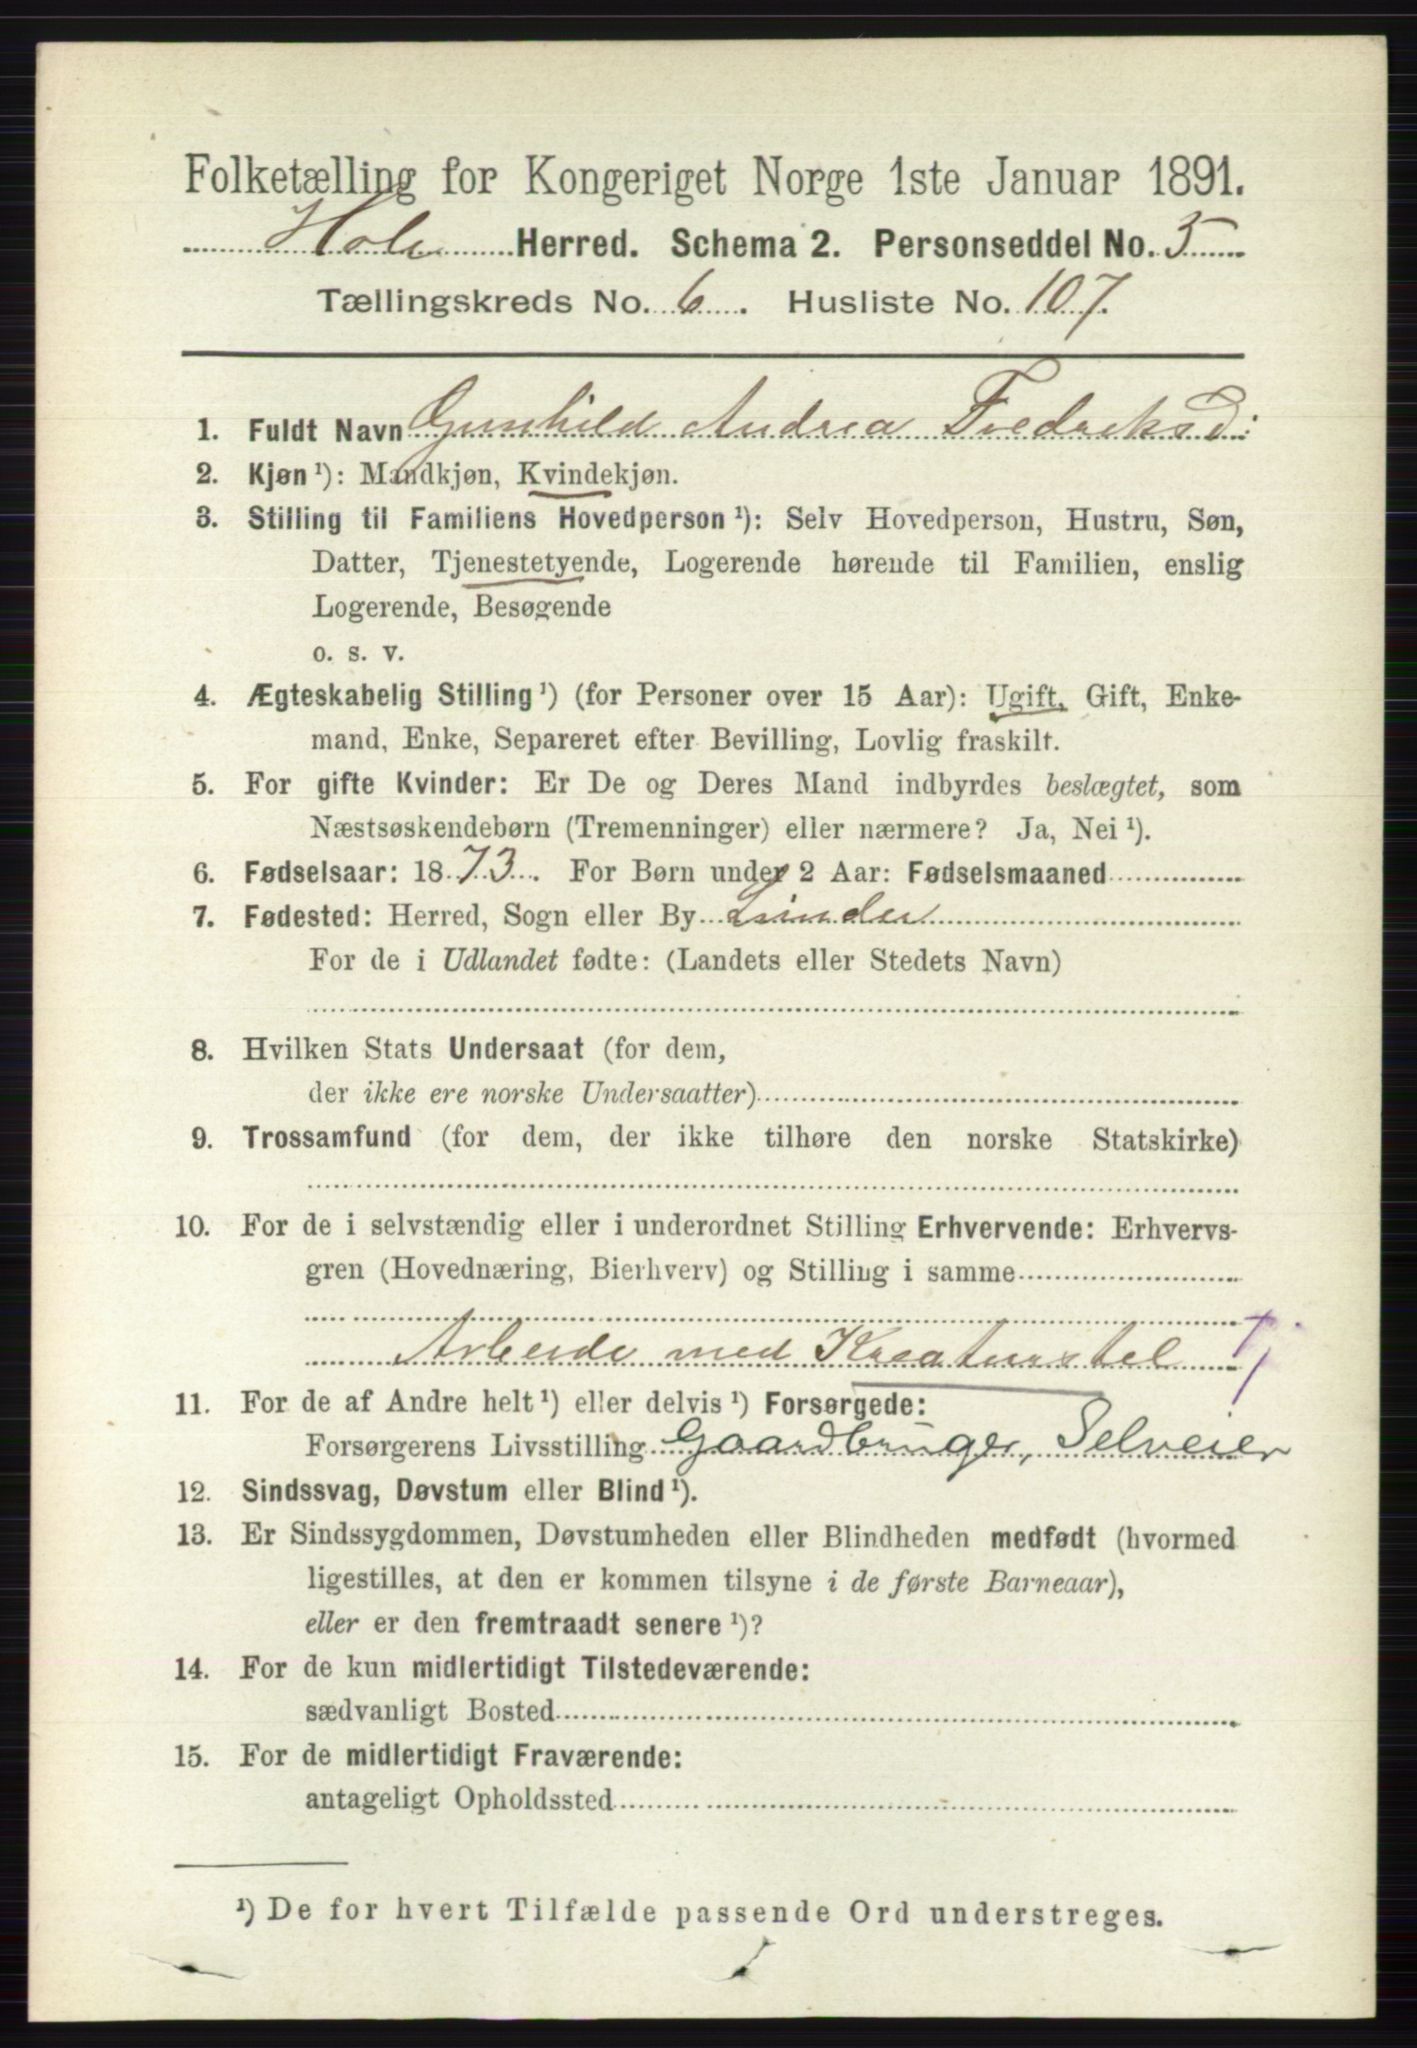 Folketælling for Kongeriget Norge 1ste Januar 1891.
Hole Herred. Schema 2. Personseddel No. 5
Tællingskreds No. 6. Husliste No. 107.
1. Fuldt Navn Gunhild Andrea Fredriksd:
2. Kjøn¹): Mandkjøn, Kvindekjøn.
3. Stilling til Familiens Hovedperson¹): Selv Hovedperson, Hustru, Søn,
Datter, Tjenestetyende, Logerende hørende til Familien, enslig
Logerende, Besøgende
o. s. v.
4. Ægteskabelig Stilling¹) (for Personer over 15 Aar): Ugift, Gift, Enke-
mand, Enke, Separeret efter Bevilling, Lovlig fraskilt.
5. For gifte Kvinder: Er De og Deres Mand indbyrdes beslægtet, som
Næstsøskendebørn (Tremenninger) eller nærmere? Ja, Nei¹).
6. Fødselsaar: 1873. For Børn under 2 Aar: Fødselsmaaned
7. Fødested: Herred, Sogn eller By Lunder
For de i Udlandet fødte: (Landets eller Stedets Navn)
8. Hvilken Stats Undersaat (for dem,
der ikke ere norske Undersaatter)
9. Trossamfund (for dem, der ikke tilhøre den norske Statskirke)
10. For de i selvstændig eller i underordnet Stilling Erhvervende: Erhvervs-
gren (Hovednæring, Bierhverv) og Stilling i samme
Arbeide med Kreaturstel Tj.
11. For de af Andre helt¹) eller delvis¹) Forsørgede:
Forsørgerens Livsstilling Gaardbruger, Selveier
12. Sindssvag, Døvstum eller Blind¹).
13. Er Sindssygdommen, Døvstumheden eller Blindheden medfødt (hvormed
ligestilles, at den er kommen tilsyne i de første Barneaar),
eller er den fremtraadt senere¹)?
14. For de kun midlertidigt Tilstedeværende:
sædvanligt Bosted
15. For de midlertidigt Fraværende:
antageligt Opholdssted
¹) De for hvert Tilfælde passende Ord understreges.